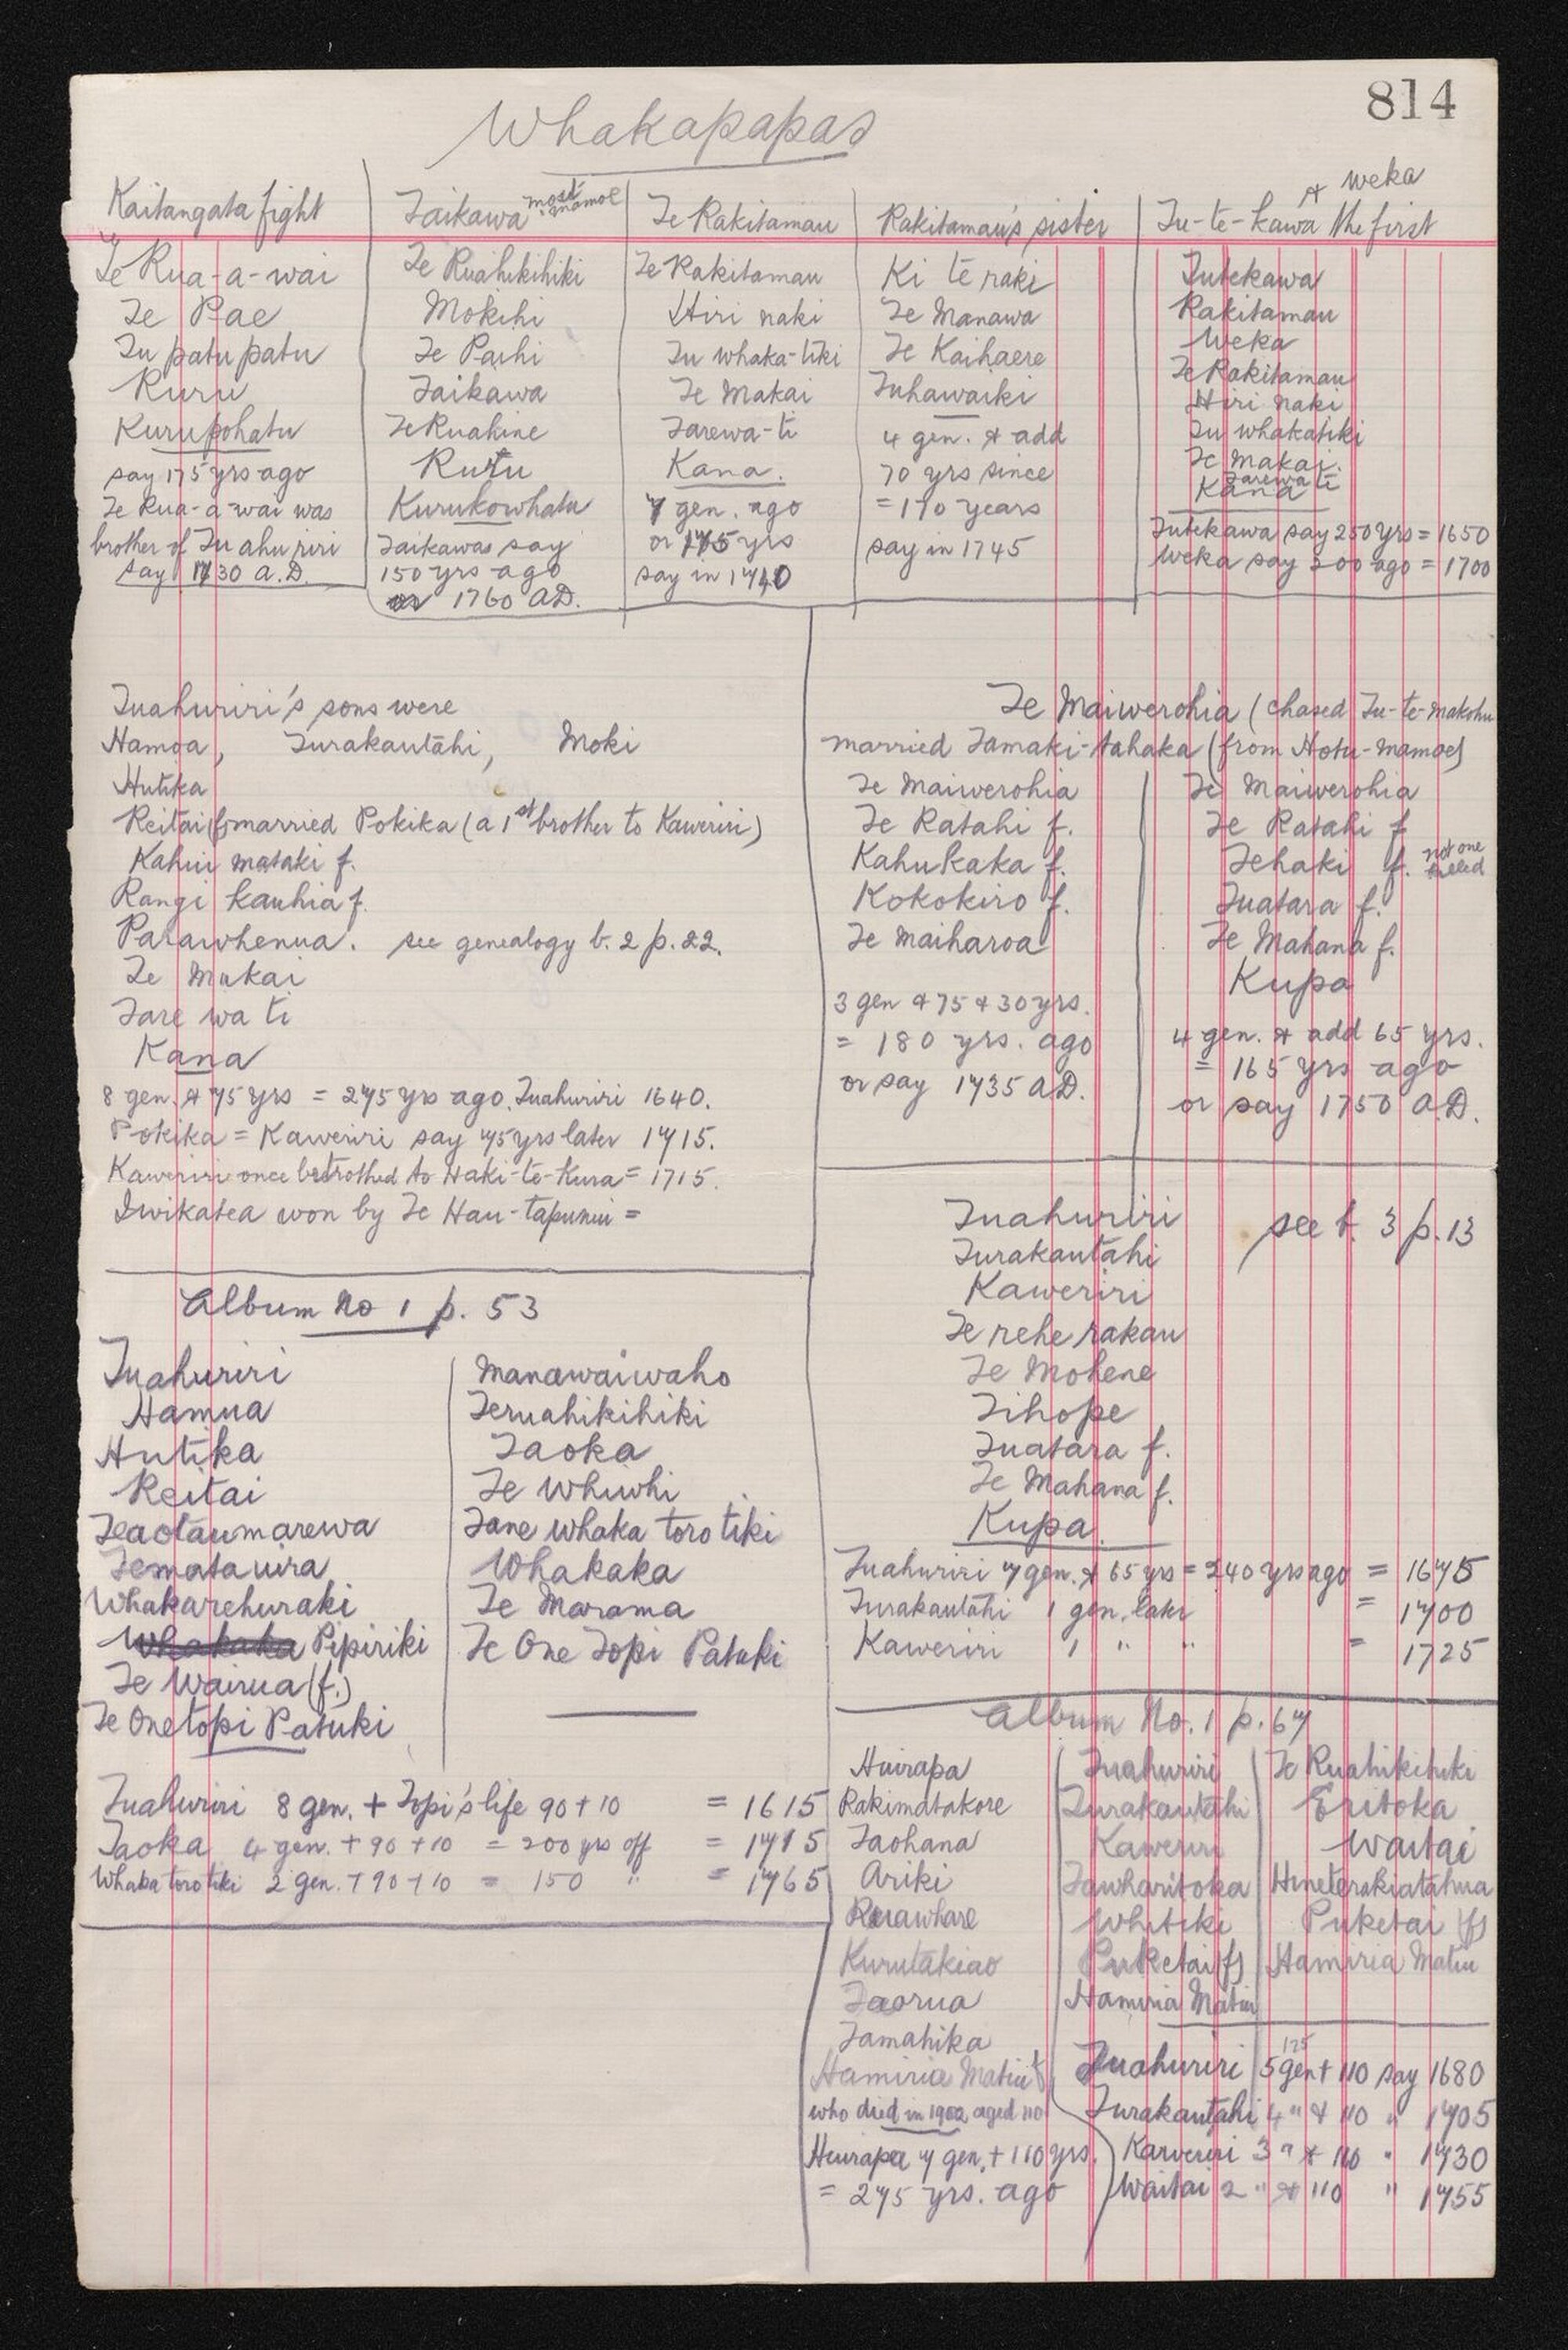 814
Whakapapas
Kaitangata fight
Te Rua-a-wai
Te Pae
Tu patu patu
Ruru
Kurupohatu
say 175 yrs ago
Te Rua-a-wai was
brother of Tu ahu riri
say 1730 A.D.
Taikawa most
Te Ruahikihiki
Mokihi
Te Paihi
Taikawa
Te Ruahine
Rutu
Kurukowhatu
Taikawas say
150 yrs ago
1760 AD.
Te Rakitamau
Te Rakitamau
Hiri naki
Tu whaka-tiki
Te Makai
Tarewa-ti
Kana.
7 gen. ago
or 175 yrs
say in 1740
Rakitamau's sister
Ki te raki
Te Manawa
Te Kaihaere
Tuhawaiki
4 gen. & add
70 yrs since
= 170 years
say in 1745
& weka
Tu-te-kawa the first
Tutekawa
Rakitamau
Weka
Te Rakitamau
Hiri naki
Tu whakatiki
Te Makai.
Tarewa ti
Kana
Tutekawa say 250 yrs = 1650
Weka say 200 ago = 1700
Tuahuriri's sons were
Hamoa, Turakautahi, Moki
Hutika
Reitai (f) married Pokika (a 1st brother to Kaweriri)
Kahui mataki f.
Rangi kauhia f.
Parawhenua. see genealogy b. 2 p. 22.
Te Makai
Tare wa ti
Kana
8 gen. & 75 yrs = 275 yrs ago. Tuahuriri 1640.
Pokika = Kaweriri say 75 yrs later 1715.
Kaweriri once betrothed to Haki-te-Kura = 1715.
Iwikatea won by Te Hau-tapunui =
Te Maiwerohia (chased Tu-te-makohu
married Tamaki-tahaka (from Hotu-mamoe)
Te Maiwerohia
Te Ratahi f.
Kahukaka f.
Kokokiro f.
Te Maiharoa
3 gen & 75 & 30 yrs.
= 180 yrs. ago
or say 1735 A.D.
Te Maiwerohia
Te Ratahi f
Tehaki f. not one killed
Tuatara f.
Te Mahana f.
Kupa
4 gen. & add 65 yrs.
= 165 yrs ago
or say 1750 A.D.
Tuahuriri see b. 3 p. 13
Turakautahi
Kaweriri
Te rehe rakau
Te Mohene
Tihope
Tuatara f.
Te Mahana f.
Kupa.
Tuahuriri 7 gen. & 65 yrs = 240 yrs ago = 1675
Turakautahi 1 gen. later = 1700
Kaweriri 1 " " = 1725
Album No 1 p. 53
Tuahuriri
Hamua
Hutika
Reitai
Teaotaumarewa
Tematauira
Whakarehuraki
Whakaka Pipiriki
Te Wairua (f.)
Te Onetopi Patuki
Manawaiwaho
Teruahikihiki
Taoka
Te Whiwhi
Tane whaka toro tiki
Whakaka
Te Marama
Te One Topi Patuki
Tuahuriri 8 gen. + Topi's life 90 + 10 = 1615
Taoka 4 gen. + 90 + 10 = 200 yrs off = 1715
Whaka toro tiki 2 gen. + 90 + 10 = 150 " = 1765
Album No. 1 p. 67
Huirapa
Rakimatakore
Taohana
Ariki
Ruawhare
Kurutakiao
Taorua
Tamahika
Hamiria Matiu
who died in 1902 aged 110
Huirapa 7 gen. + 110 yrs.
= 275 yrs. ago
Tuahuriri
Turakautahi
Kaweriri
Tawharitoka
Whitiki
Puketai (f)
Hamiria Matiu
Te Ruahikihiki
Eritoka
Waitai
Hineterakiatahua
Puketai (f)
Hamiria Matiu
125
Tuahuriri 5 gen + 110 say 1680
Turakautahi 4 " & 110 " 1705
Kaweriri 3 " & 110 " 1730
Waitai 2 " & 110 " 1755